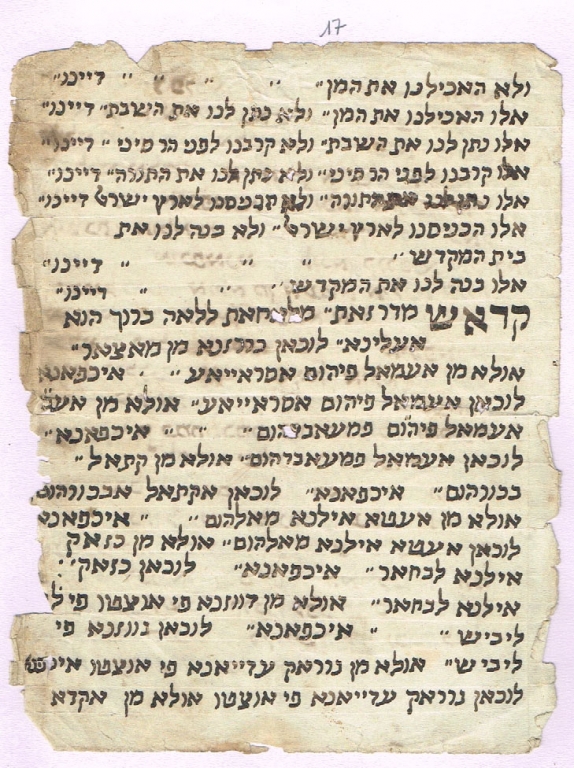 17
ולא האכילנו את המן״ ״ ״ ״ ״ דיינו״
אלו האכילנו את המן״ ולא נתן לנו את השבת״ דיינו״
אלו נתן לנו את השבת״ ולא קרבנו לפני הר סיני״ דיינו״
אלו קרבנו לפני הר סיני״ ולא נתן לנו את התורה״ דיינו״
אלו נתן לנו את התורה״ ולא הכניסנו לארץ ישראל דיינו״
אלו הכניסנו לארץ ישראל״ ולא בנה לנו את
בית המקדש״ ״ ״ ״ דיינו״
אלו בנה לנו את המקדש״ ״ ״ דיינו״
קדאש מדרגאת״ ללאה ברוך הוא
אעלינא״ לוכאן כררגנא מן מאצאר״
אולא מן אעמאל פיהום אסראייאע״ ״ איכפאנא
לוכאן אעמאל פיהום אסראייאע״ אולא מן
אעמאל פיהום פמעאבדהום״ ״ ״ איכפאנא״
לוכאן אעמאל פמעאבדהום״ אולא מן קתאל״
בכורהום״ איכפאנא״ לוכאן אקתאל אבכורהום
אולא מן אעטא אילנא מאלהום״ ״ איכפאנא
לוכאן אעטא אילנא מאלהום״ אולא מן
אילנא לבחאר״ איכפאנא״ לוכאן
אילנא לבחאר״ אולא מן דווזנא פי אוצטו פי
ליביש״ ״ איכפאנא״ לוכאן פי
ליביש״ אולא מן גרראק עדייאנא פי אוצטו
לוכאן גרראק עדייאנא פי אוצטו אולא מן אקדא